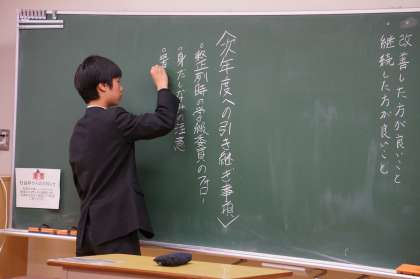 ・改善した方が良いこと
・継続した方が良いこと
〈次年度への引き継ぎ事項〉
・整列時の学級委員のフォロー
・身だしなみの注意